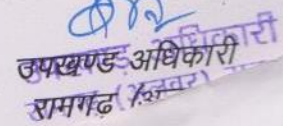 उपखण्ड अधिकारी
रामगढ़ (अलवर)